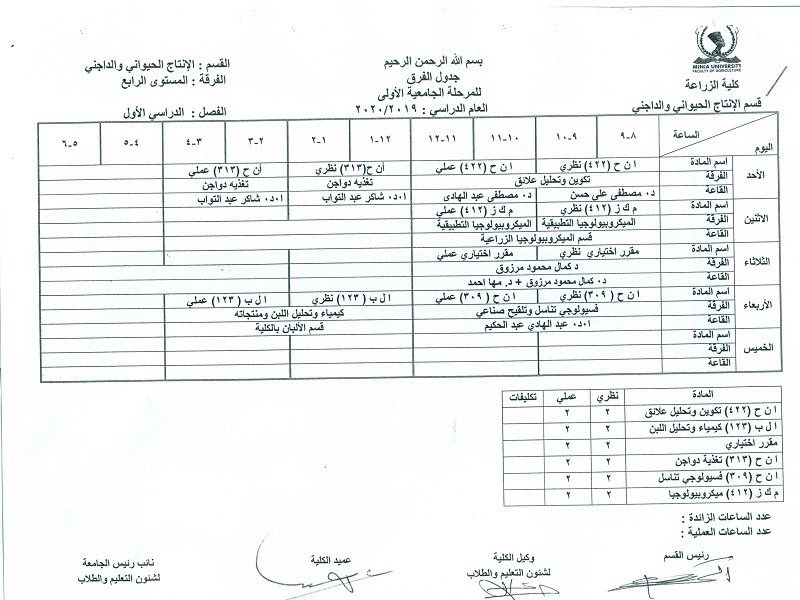 MINIA UNIVERSITY
FACULTY OF AGRICULTURE
كلية الزراعة
قسم الإنتاج الحيواني والداجني
بسم الله الرحمن الرحيم
جدول الفرق
للمرحلة الجامعية الأولى
العام الدراسي : ٢٠٢٠/٢٠١٩
القسم : الإنتاج الحيواني والداجني
الفرقة : المستوى الرابع
الفصل : الدراسي الأول
الساعة ٨-٩ ٩-١٠ ١٠-١١ ١١-١٢ ١٢-١ ١-٢ ٢-٣ ٣-٤ ٤-٥ ٥-٦
اليوم
الأحد
اسم المادة ان ح (٤٢٢) نظري ان ح (٤٢٢) عملي أن ح(٣١٣) نظري أن ح (٣١٣) عملي
الفرقة تكوين وتحليل علائق تغذيه دواجن تغذيه دواجن
القاعة د٠ مصطفى على حسن د٠ مصطفى عبد الهادى ا٠د٠ شاكر عبد التواب ا٠د٠ شاكر عبد التواب
الاثنين
اسم المادة م ك ز (٤١٢) نظري م ك ز (٤١٢) عملي
الفرقة الميكروبيولوجيا التطبيقية الميكروبيولوجيا التطبيقية
القاعة قسم الميكروبيولوجيا الزراعية
الثلاثاء
اسم المادة مقرر اختياري نظري مقرر اختياري عملي
الفرقة د كمال محمود مرزوق
القاعة د٠ كمال محمود مرزوق + د. مها احمد
الأربعاء
اسم المادة ان ح ( ٣٠٩) نظري ان ح (٣٠٩) عملي ال ب (١٢٣) نظري ال ب (١٢٣) عملي
الفرقة فسيولوجي تناسل وتلقيح صناعي كيمياء وتحليل اللبن ومنتجاته
القاعة ا٠د٠ عبد الهادي عبد الحكيم قسم الألبان بالكلية
الخميس
اسم المادة
الفرقة
القاعة
المادة نظري عملي تكليفات
ان ح (٤٢٢) تكوين وتحليل علائق ٢ ٢
ال ب (١٢٣) كيمياء وتحليل اللبن ٢ ٢
مقرر اختياري ٢ ٢
ان ح (٣١٣) تغذية دواجن ٢ ٢
ان ح (٣٠٩) فسيولوجي تناسل ٢ ٢
م ك ز (٤١٢) ميكروبيولوجيا ٢ ٢
عدد الساعات الزائدة :
عدد الساعات العملية :
رئيس القسم
وكيل الكلية
لشئون التعليم والطلاب
عميد الكلية
نائب رئيس الجامعة
لشئون التعليم والطلاب